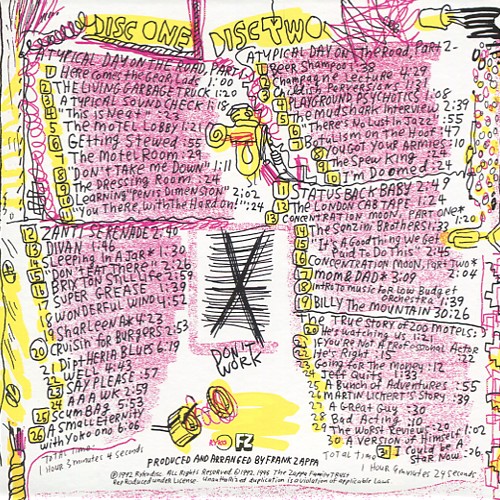 DISC ONE
A TYPICAL DAY ON THE ROAD, PART 1
1 Here comes the Gear, Lads 1:00
2 THE LIVING GARBAGE TRUCK 1:20
3 A TYPICAL SOUND CHECK 1:18
4 "This is Neat" :23
5 The MOTEL LOBBY 1:21
6 GETTING Stewed :55
7 The Motel Room :29
8 "DON'T TAKE me DOWN" 1:11
9 The DRessing Room :24
10 Learning "PENIS DIMENSION" 2:02
11 "You There, With The Hard on!" :24
12 ZANTI SERENADE 2:40
13 DIVAN 1:46
14 Sleeping In A Jar* 1:30
15 "DON'T EAT THERE" 2:26
16 BRIXTON STILL LIFE 2:59
17 SUPER GREASE 1:39
18 WONDERFUL WIND 4:52
19 SHARLEENA* 4:23
20 CRUISIN FOR BURGERS 2:53
21 DIPTHERIA BLUES 6:19
22 WELL 4:43
23 SAY PLEASE :57
24 AAAWK 2:59
25 SCUMBAG 5:53
26 A Small ETERNITY
with YOKO ONO 6:06
TOTAL TIME
1 HOUR 3 minutes 4 seconds
DISC TWO
A TYPICAL DAY ON The ROAD, PART 2-
1 Beer Shampoo 1:39
2 CHAMPAGNE Lecture 4:29
3 CHILDISH PERVERSIONS 1:31
4 PLAYGROUND PSYCHOTICS 1:08
5 The mudshark Interview 2:39
6 "There's NO LUST IN JAZZ" :55
7 BOTULISM ON The HOOF :47
8 YOU GOT YOUR ARMIES :10
9 The SPEW KING :24
10 I'm DOOMED :24
11 STATUS BACK BABY 2:49
12 The LONDON CAB TAPE 1:24
13 CONCENTRATION MOON, PART ONE* 1:20
14 The Sanzini BROTHERS 1:33
15 "IT'S A Good Thing We Get
Paid To Do This" 2:45
16 CONCENTRATION MOON, PART TWO* 2:04
17 MOM & DAD* 3:08
18 INTRO TO MUSIC FOR LOW BUDGET
ORCHESTRA 1:39
19 BILLY THE MOUNTAIN 30:26
The TRUE STORY OF 200 MOTELS:
20 He's Watching Us 1:21
21 If You're Not A PROFESSIONAL ACTOR
22 He's Right :15
23 Going for The Money :12
24 JEFF QUITS
25 A Bunch of Adventures :55
26 MARTIN LICKERT'S STORY :39
27 A Great Guy :30
28 Bad Acting :10
29 The WORST REVIEWS :20 1:02
30 A VERSION OF Himself
31 I Could Be A
STAR NOW
TOTAL TIME
1 Hour 9 minutes 24 seconds
DON'T
WORK
RYKO
FZ
PRODUCED AND ARRANGED BY FRANK ZAPPA